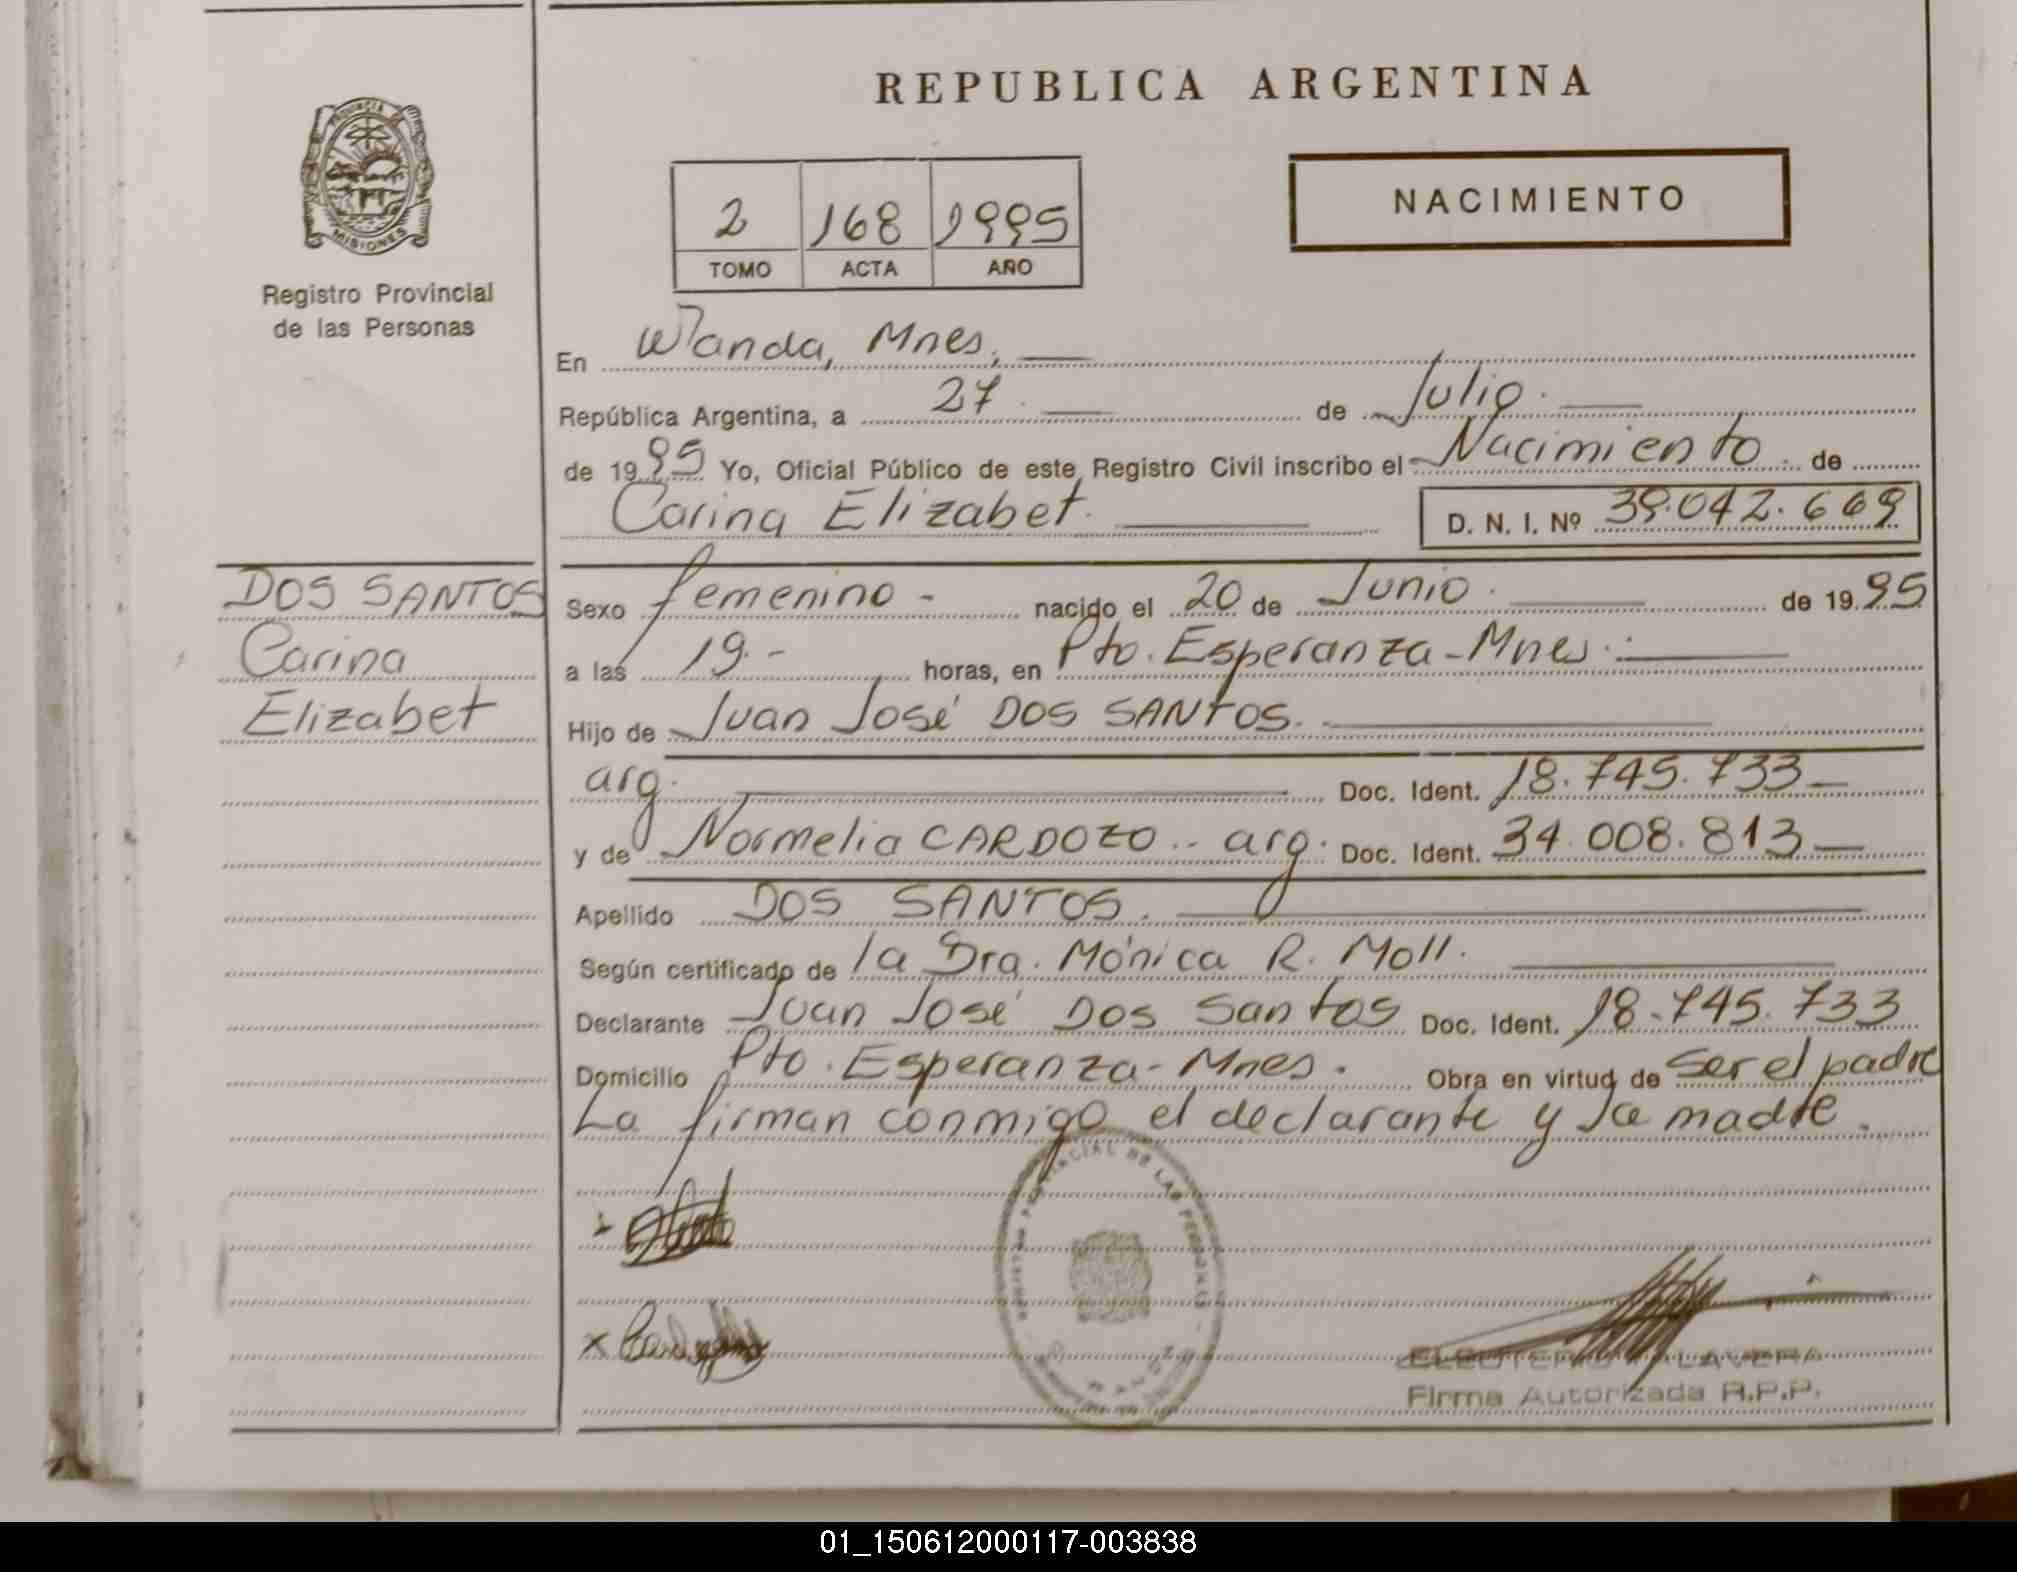 REPUBLICA ARGENTINA
PROVINCIA
MISIONES
Registro Provincial
de las Personas
2 168 1995
TOMO ACTA AÑO
NACIMIENTO
En Wanda, Mnes.
República Argentina, a 27 de Julio.
de 1995 Yo, Oficial Público de este Registro Civil inscribo el Nacimiento de
Carina Elizabet. D. N. I. Nº 39.042.669
DOS SANTOS
Carina
Elizabet
Sexo femenino - nacido el 20 de Junio. de 1995
a las 19.- horas, en Pto. Esperanza-Mnes.
Hijo de Juan José DOS SANTOS.
arg. Doc. Ident. 18.745.733
y de Normelia CARDOZO.. arg. Doc. Ident. 34.008.813
Apellido DOS SANTOS.
Según certificado de la Dra. Mónica R. Moll.
Declarante Juan José Dos Santos Doc. Ident. 18.745.733
Domicilio Pto. Esperanza-Mnes. Obra en virtud de ser el padre
La firman conmigo el declarante y la madre.
PROVINCIAL DE LAS PERSONAS
x
ELEUTERIO TALAVERA
Firma Autorizada R.P.P.
01_150612000117-003838